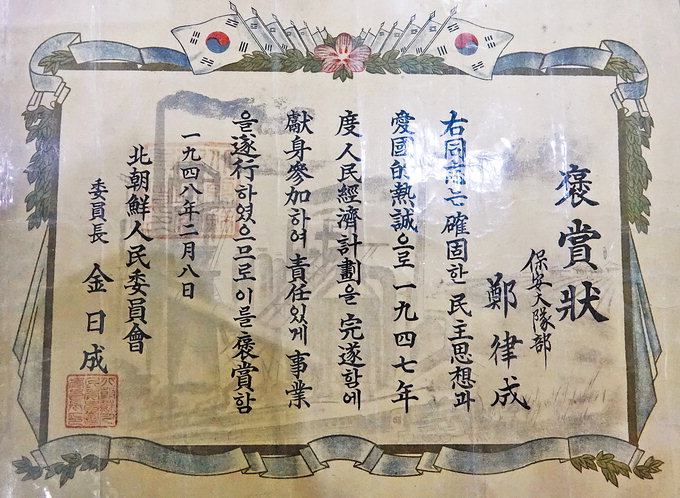 褒賞狀
保安大隊部
鄭律成
右同志는 確固한 民主思想과
愛國的熱誠으로 一九四七年
度 人民經濟計劃을 完遂함에
獻身參加하여 責任있게 事業
을 遂行하였으므로 이를 褒賞함
一九四八年二月八日
北朝鮮人民委員會
委員長 金日成